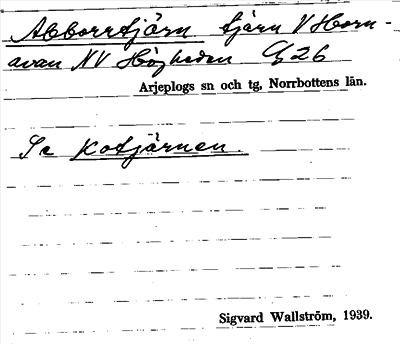 Abborrtjärn tjärn V Horn-
avan NV Högheden G26
Arjeplogs sn och tg, Norrbottens län.
Se Kotjärnen.
Sigvard Wallström, 1939.